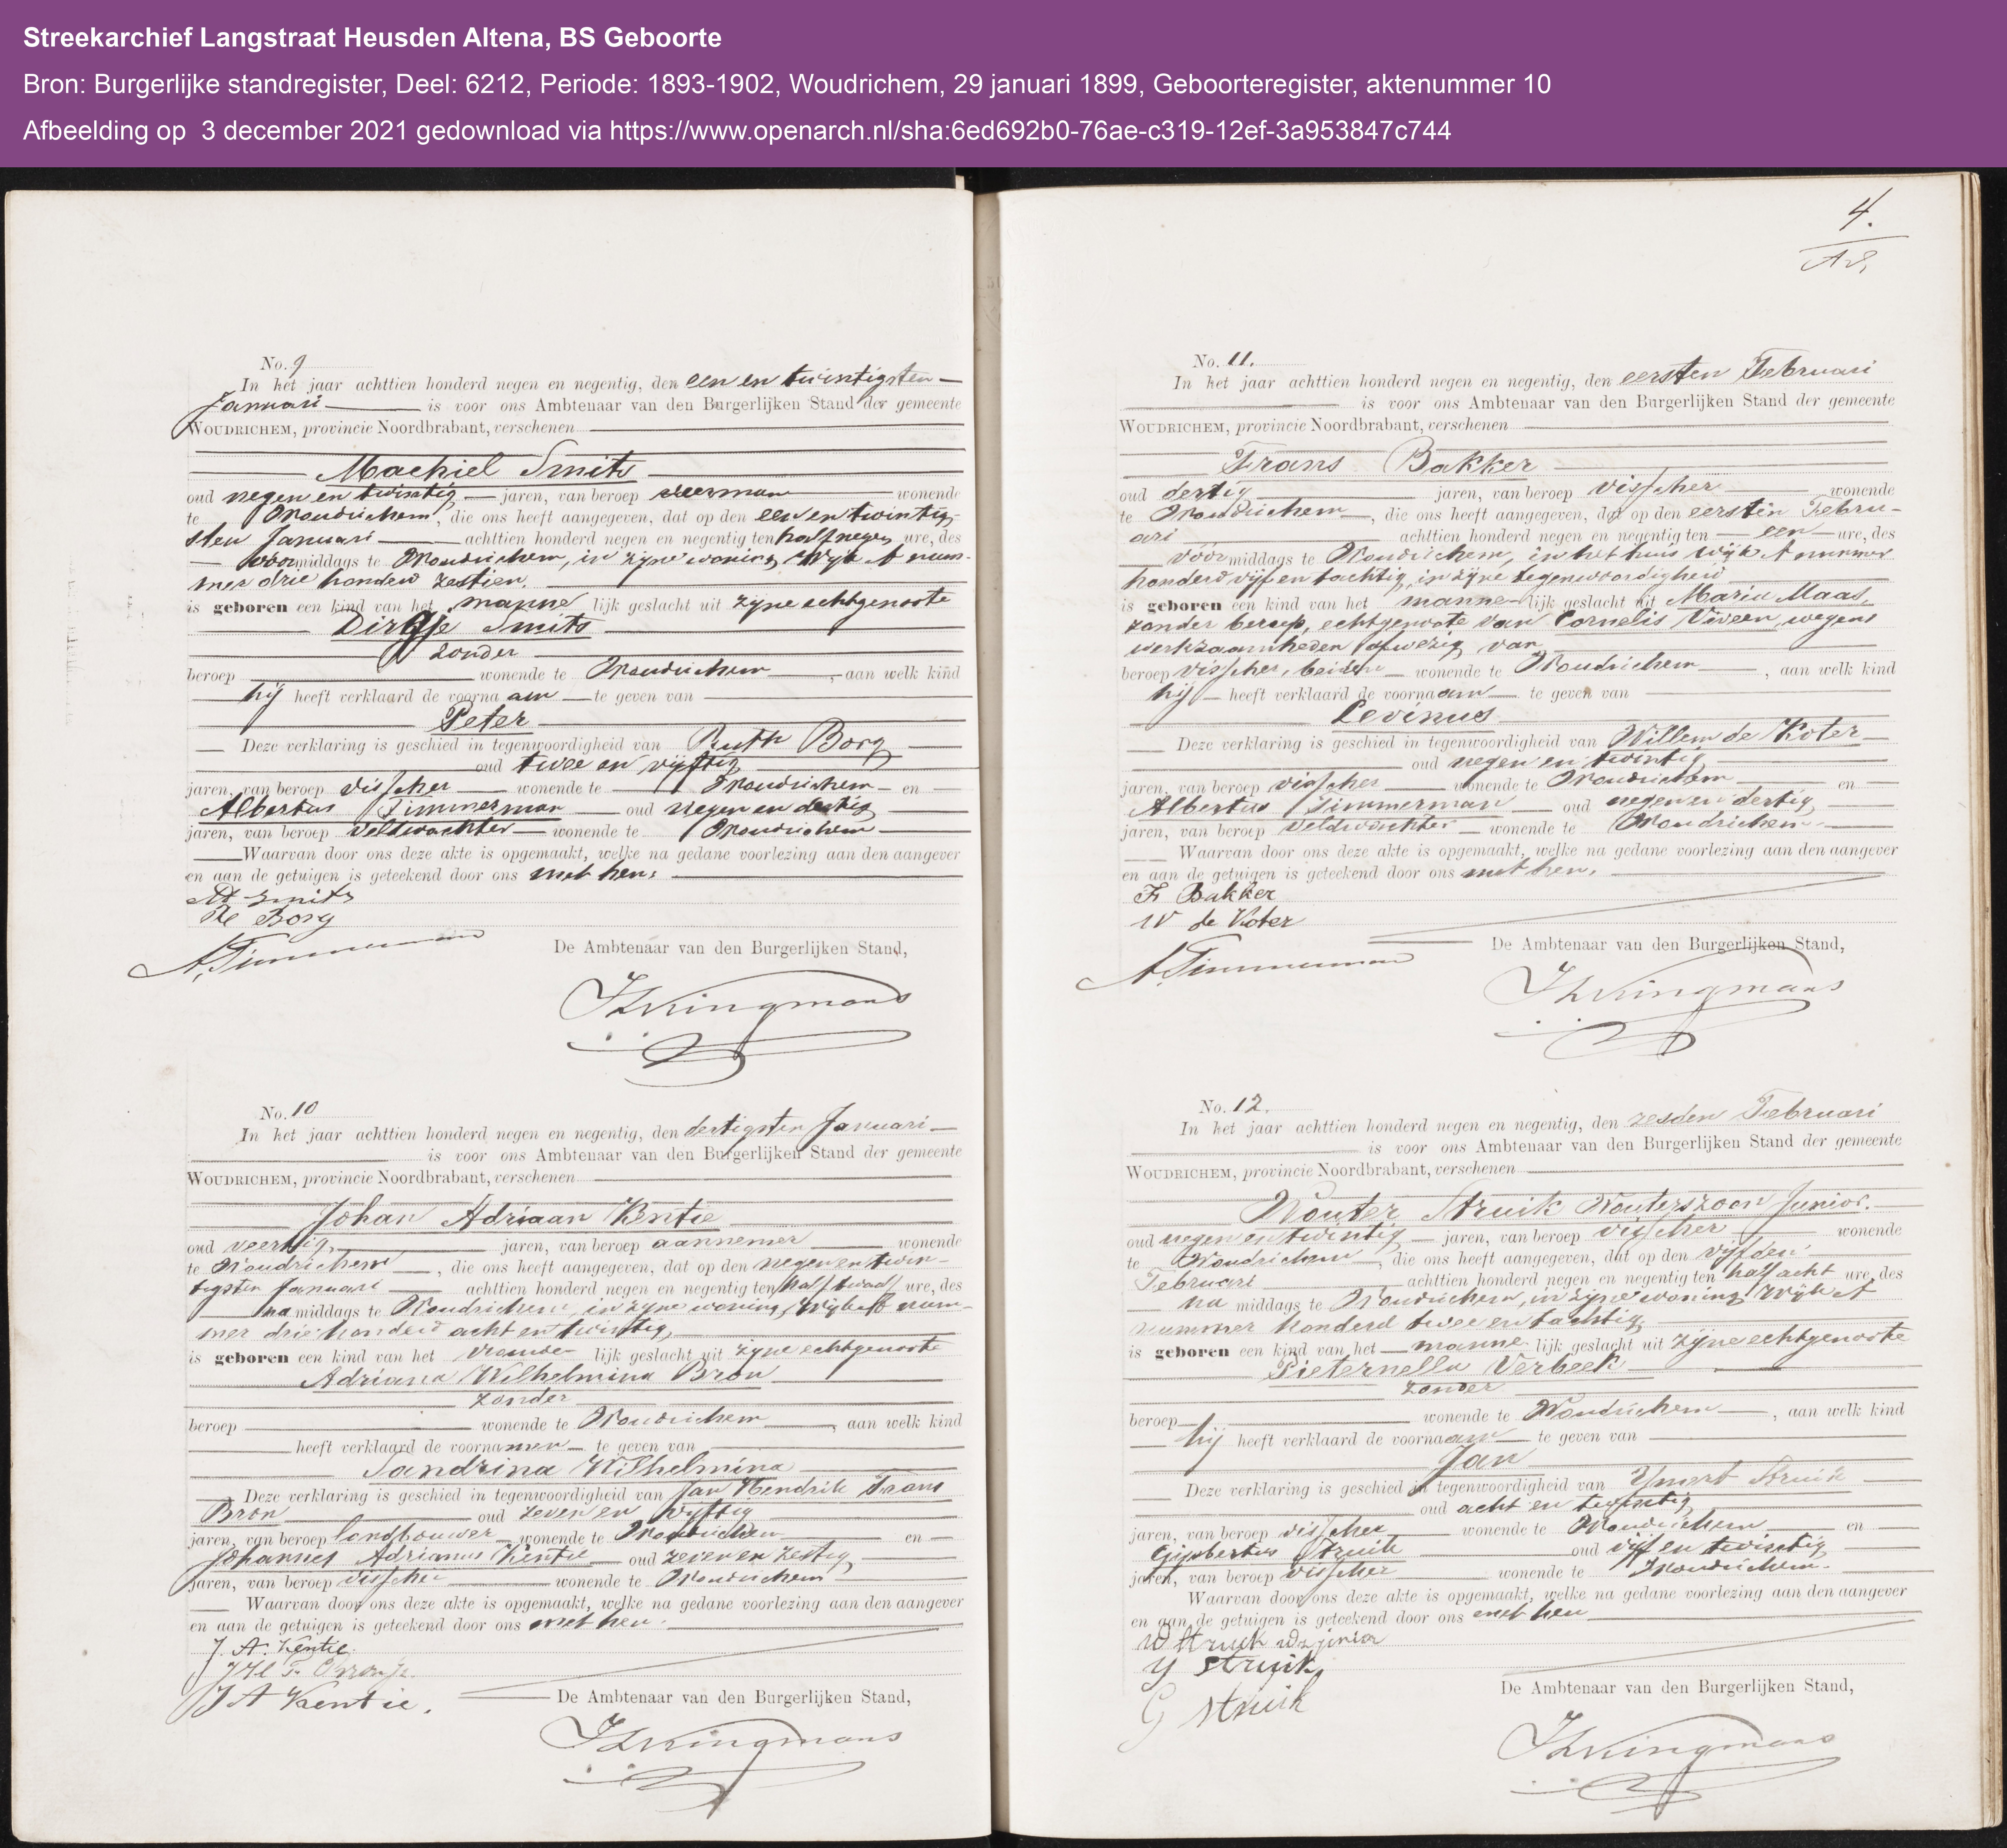 Streekarchief Langstraat Heusden Altena, BS Geboorte
Bron: Burgerlijke standregister, Deel: 6212, Periode: 1893-1902, Woudrichem, 29 januari 1899, Geboorteregister, aktenummer 10
Afbeelding op 3 december 2021 gedownload via https://www.openarch.nl/sha:6ed692b0-76ae-c319-12ef-3a953847c744
No. 9
In het jaar achttien honderd negen en negentig, den een en twintigsten
Januari is voor ons Ambtenaar van den Burgerlijken Stand der gemeente
WOUDRICHEM, provincie Noordbrabant, verschenen
Machiel Smits
oud negen en twintig jaren, van beroep wonende
te Woudrichem, die ons heeft aangegeven, dat op den een en twintig-
sten Januari achttien honderd negen en negentig ten half negen ure, des
voormiddags te Woudrichem, in zijne woning Wijk A num-
mer drie honderd zestien.
is geboren een kind van het mannelijk geslacht uit zijne echtgenoote
Dirkje Smits
zonder
beroep wonende te Woudrichem, aan welk kind
hij heeft verklaard de voornaam te geven van
Peter
Deze verklaring is geschied in tegenwoordigheid van Ruth Borg
oud twee en vijftig
jaren, van beroep visscher wonende te Woudrichem en
Albertus Timmerman oud negen en dertig
jaren, van beroep veldwachter wonende te Woudrichem
Waarvan door ons deze akte is opgemaakt, welke na gedane voorlezing aan den aangever
en aan de getuigen is geteekend door ons met hen.
M Smits
R Borg
A. Timmerman
De Ambtenaar van den Burgerlijken Stand,
No. 10
In het jaar achttien honderd negen en negentig, den dertigsten Januari
is voor ons Ambtenaar van den Burgerlijken Stand der gemeente
WOUDRICHEM, provincie Noordbrabant, verschenen
Johan Adriaan Kentie
oud veertig, jaren, van beroep aannemer wonende
te Woudrichem, die ons heeft aangegeven, dat op den negen en twin-
tigsten Januari achttien honderd negen en negentig ten half twaalf ure, des
namiddags te Woudrichem, in zijne woning, Wijk num-
mer drie honderd acht en twintig,
is geboren een kind van het vrouwelijk geslacht uit zijne echtgenoote
Adriana Wilhelmina Bron
zonder
beroep wonende te Woudrichem, aan welk kind
heeft verklaard de voornamen te geven van
Sandrina Wilhelmina
Deze verklaring is geschied in tegenwoordigheid van Jan Hendrik Frans
Bron oud zeven en vijftig
jaren, van beroep landbouwer wonende te Woudrichem en
Johannes Adrianus Kentie oud zeven en zestig
jaren, van beroep visscher wonende te Woudrichem
Waarvan door ons deze akte is opgemaakt, welke na gedane voorlezing aan den aangever
en aan de getuigen is geteekend door ons met hen.
J. A. Kentie.
J A Kentie.
De Ambtenaar van den Burgerlijken Stand,
4.
No. 11.
In het jaar achttien honderd negen en negentig, den eersten Februari
is voor ons Ambtenaar van den Burgerlijken Stand der gemeente
WOUDRICHEM, provincie Noordbrabant, verschenen
Frans Bakker
oud dertig jaren, van beroep visscher wonende
te Woudrichem, die ons heeft aangegeven, dat op den eersten Febru-
ari achttien honderd negen en negentig ten een ure, des
vóórmiddags te Woudrichem, in het huis wijk A nummer
honderd vijf en tachtig, in zijne tegenwoordigheid
is geboren een kind van het mannelijk geslacht uit Maria Maas,
zonder beroep, echtgenoote van Cornelis Viveen, wegens
werkzaamheden afwezig, van
beroep visscher, beiden wonende te Woudrichem, aan welk kind
hij heeft verklaard de voornaam te geven van
Levinus
Deze verklaring is geschied in tegenwoordigheid van Willem de Koter
oud negen en twintig
jaren, van beroep visscher wonende te Woudrichem en
Albertus Timmerman oud negen en dertig
jaren, van beroep veldwachter wonende te Woudrichem.
Waarvan door ons deze akte is opgemaakt, welke na gedane voorlezing aan den aangever
en aan de getuigen is geteekend door ons met hen.
F Bakker
W de Koter
A. Timmerman
De Ambtenaar van den Burgerlijken Stand,
No. 12.
In het jaar achttien honderd negen en negentig, den zesden Februari
is voor ons Ambtenaar van den Burgerlijken Stand der gemeente
WOUDRICHEM, provincie Noordbrabant, verschenen
Wouter Struik Wouterszoon Junior.
oud negen en twintig jaren, van beroep visscher wonende
te Woudrichem, die ons heeft aangegeven, dat op den vijfden
Februari achttien honderd negen en negentig ten half acht ure, des
na middags te Woudrichem, in zijne woning Wijk A
nummer honderd twee en tachtig.
is geboren een kind van het mannelijk geslacht uit zijne echtgenoote
Pieternella Verbeek
zonder
beroep wonende te Woudrichem, aan welk kind
hij heeft verklaard de voornaam te geven van
Jan
Deze verklaring is geschied in tegenwoordigheid van Struik
oud acht en twintig
jaren, van beroep visscher wonende te Woudrichem en
Gijsbertus Struik oud vijf en twintig
jaren, van beroep visscher wonende te Woudrichem.
Waarvan door ons deze akte is opgemaakt, welke na gedane voorlezing aan den aangever
en aan de getuigen is geteekend door ons met hen
W Struik Wz junior
Y Struik
G Struik
De Ambtenaar van den Burgerlijken Stand,